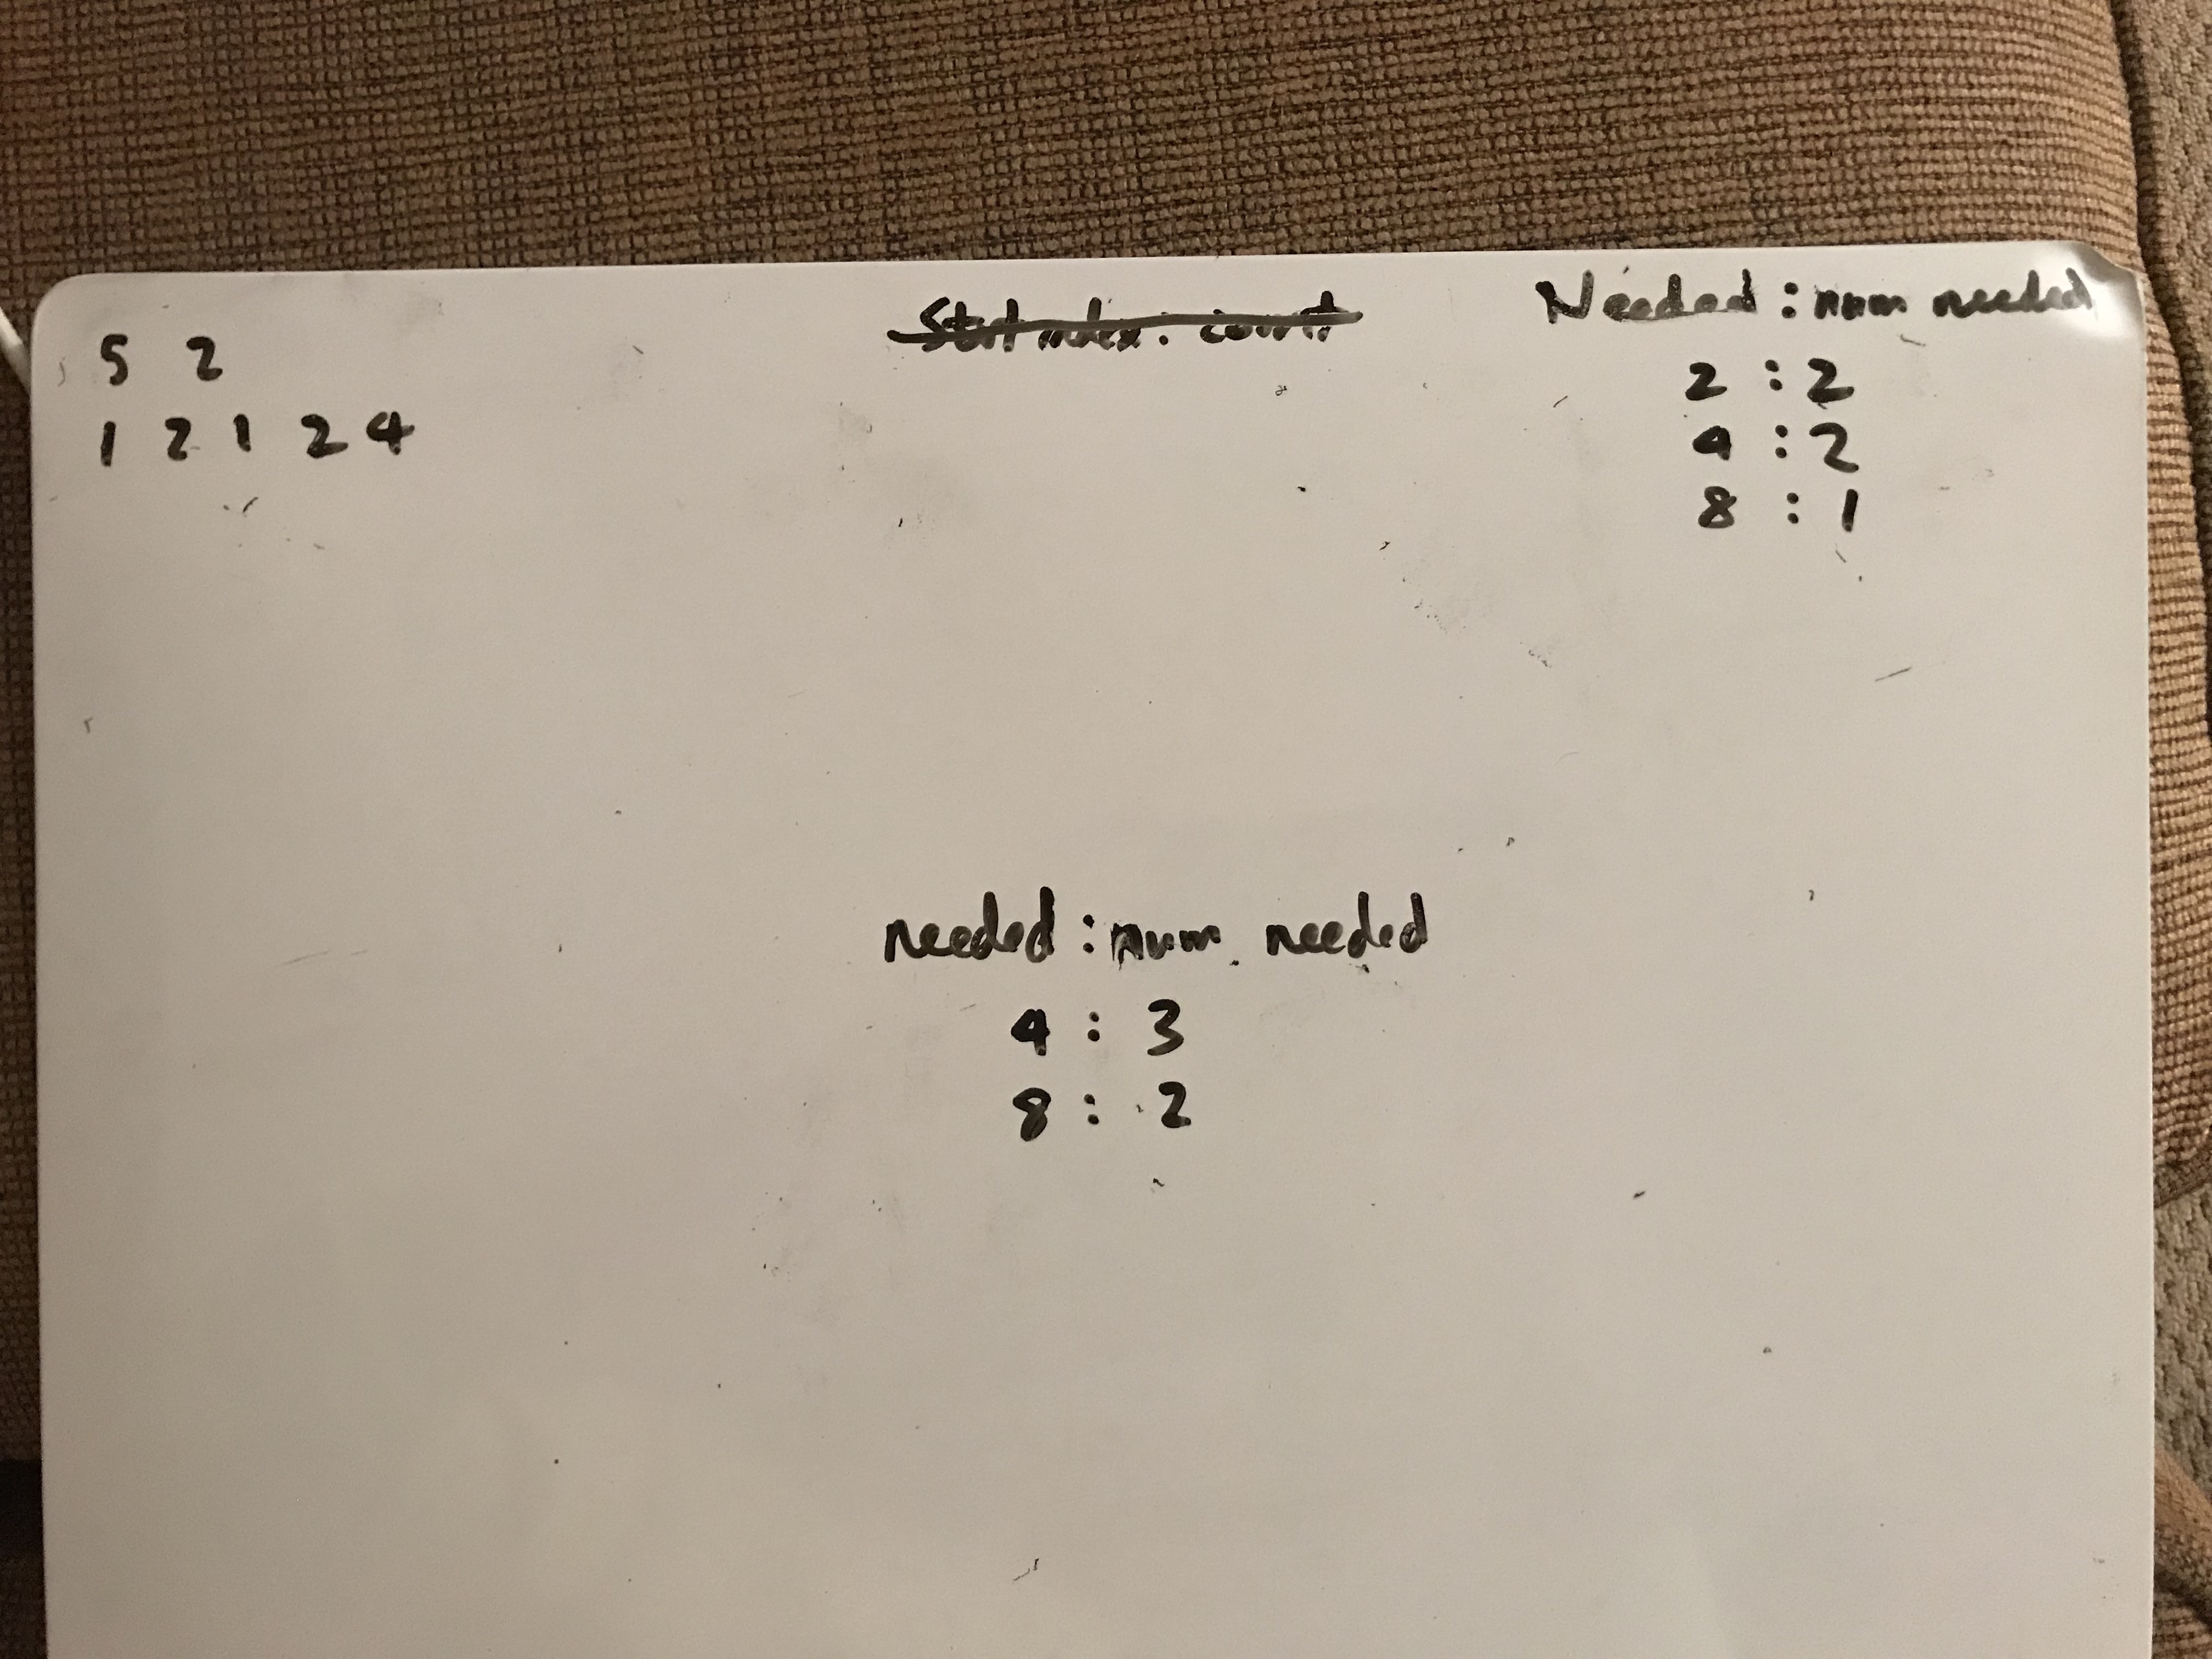 5 2
1 2 1 2 4
Start index: count
Needed : num needed
2 : 2
4 : 2
8 : 1
needed : num needed
4 : 3
8 : 2